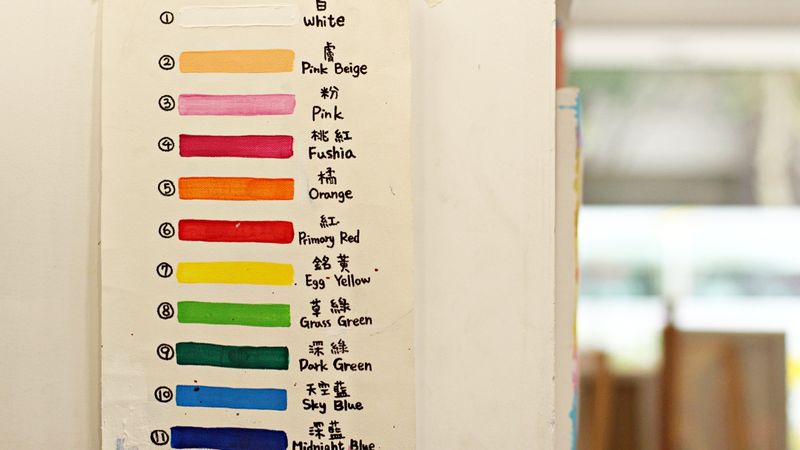 ① 白
White
② 膚
Pink Beige
③ 粉
Pink
④ 桃紅
Fushia
⑤ 橘
Orange
⑥ 紅
Primary Red
⑦ 鉻黃
Egg-Yellow
⑧ 草綠
Grass Green
⑨ 深綠
Dark Green
⑩ 天空藍
Sky Blue
⑪ 深藍
Midnight Blue